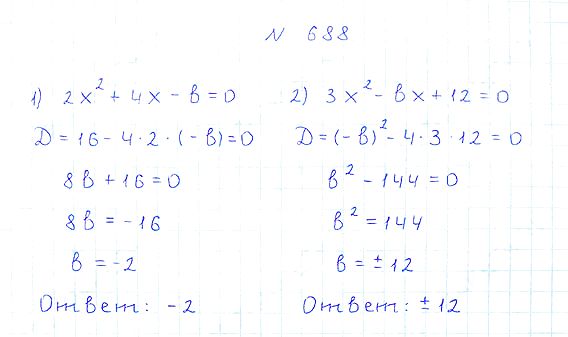 N 688
1) 2x² + 4x - b = 0
D = 16 - 4 · 2 · (-b) = 0
8b + 16 = 0
8b = -16
b = -2
Ответ: -2
2) 3x² - bx + 12 = 0
D = (-b)² - 4 · 3 · 12 = 0
b² - 144 = 0
b² = 144
b = ±12
Ответ: ±12